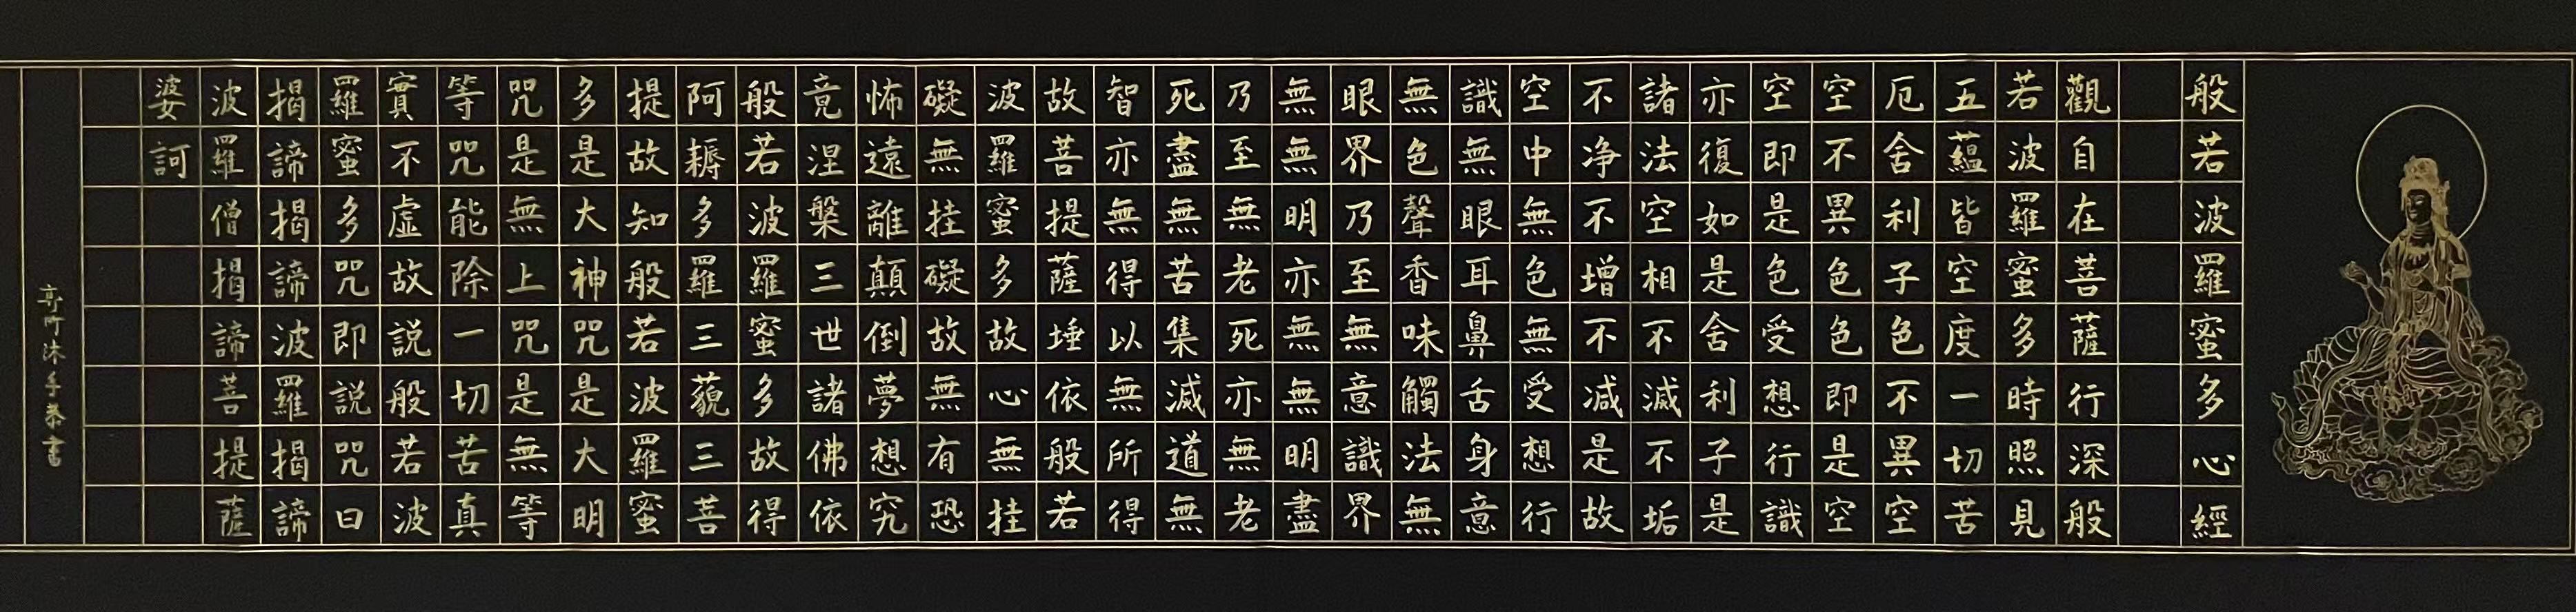 般若波羅蜜多心經
觀自在菩薩行深般
若波羅蜜多時照見
五蘊皆空度一切苦
厄舍利子色不異空
空不異色色即是空
空即是色受想行識
亦復如是舍利子是
諸法空相不滅不垢
不净不增不减是故
空中無色無受想行
識無眼耳鼻舌身意
無色聲香味觸法無
眼界乃至無意識界
無無明亦無無明盡
乃至無老死亦無老
死盡無苦集滅道無
智亦無得以無所得
故菩提薩埵依般若
波羅蜜多故心無挂
礙無挂礙故無有恐
怖遠離顛倒夢想究
竟涅槃三世諸佛依
般若波羅蜜多故得
阿耨多羅三藐三菩
提故知般若波羅蜜
多是大神咒是大明
咒是無上咒是無等
等咒能除一切苦真
實不虛故説般若波
羅蜜多咒即説咒曰
揭諦揭諦波羅揭諦
波羅僧揭諦菩提薩
婆訶
沐手恭書